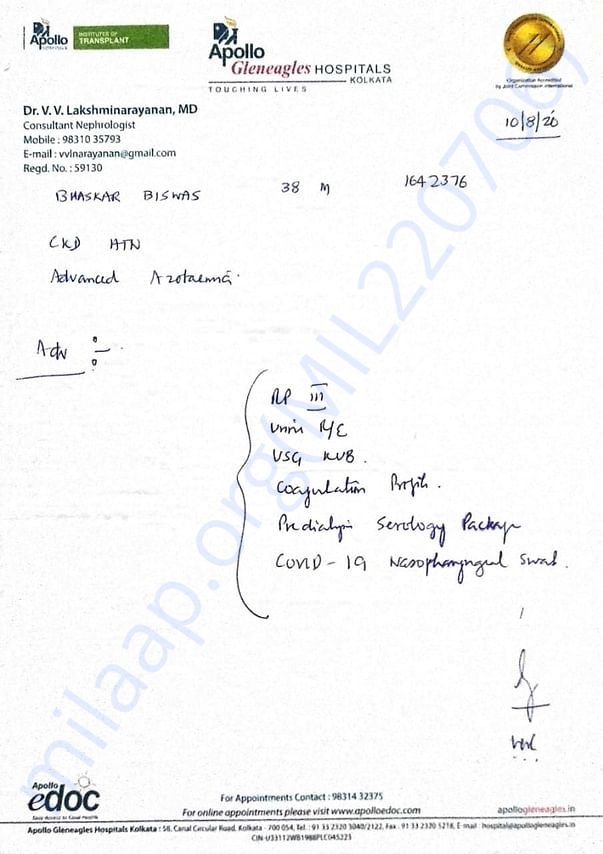 Apollo HOSPITALS
INSTITUTES OF TRANSPLANT
Apollo
Gleneagles HOSPITALS
KOLKATA
TOUCHING LIVES
Organization Accredited
by Joint Commission International
Dr. V. V. Lakshminarayanan, MD
Consultant Nephrologist
Mobile : 98310 35793
E-mail : vvlnarayanan@gmail.com
Regd. No. : 59130
10/8/20
BHASKAR BISWAS 38 M 1642376
CKD HTN
Advanced Azotaemia.
Adv :-
RP III
Urine R/E
USG KUB.
Coagulation Profile.
Predialysis Serology Package
COVID-19 Nasopharyngeal Swab.
milaap.org(MIL220706)
Apollo
edoc
Easy Access to Good Health
For Appointments Contact : 98314 32375
For online appointments please visit www.apolloedoc.com
apollogleneagles.in
Apollo Gleneagles Hospitals Kolkata : 58, Canal Circular Road, Kolkata - 700 054, Tel : 91 33 2320 3040/2122, Fax : 91 33 2320 5218, E-mail : hospital@apollogleneagles.in
CIN-U33112WB1988PLC045223